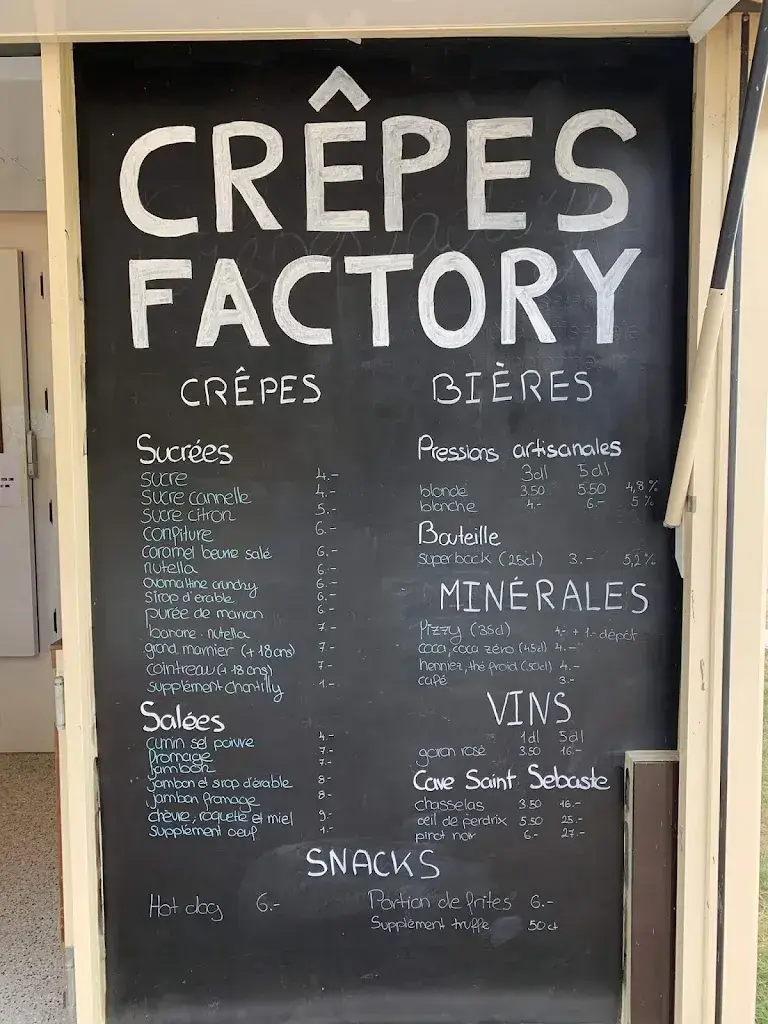 CRÊPES
FACTORY
CRÊPES
Sucrées
sucre 4.-
sucre cannelle 4.-
sucre citron 5.-
confiture 6.-
caramel beurre salé 6.-
nutella 6.-
ovomaltine crunchy 6.-
sirop d'érable 6.-
purée de marron 6.-
banane . nutella 7.-
grand marnier (+18ans) 7.-
cointreau (+18 ans) 7.-
supplément chantilly 1.-
Salées
cumin sel poivre 4.-
fromage 7.-
jambon 7.-
jambon et sirop d'érable 8.-
jambon fromage 8.-
chèvre, roquette et miel 9.-
supplément oeuf 1.-
BIÈRES
Pressions artisanales
3dl 5dl
blonde 3.50 5.50 4,8%
blanche 4.- 6.- 5%
Bouteille
superbock (25cl) 3.- 5,2%
MINÉRALES
Pizzy (35cl) 4.- + 1.- dépôt
coca, coca zéro (45cl) 4.-
henniez, thé froid (50cl) 4.-
café 3.-
VINS
1dl 5dl
garan rosé 3.50 16.-
Cave Saint Sebaste
chasselas 3.50 16.-
oeil de perdrix 5.50 25.-
pinot noir 6.- 27.-
SNACKS
Hot dog 6.-
Portion de frites 6.-
Supplément truffe 50ct